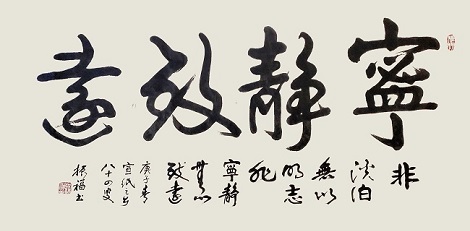 寧靜致遠
非
淡泊
無以
明志
非
寧靜
無以
致遠
庚子春
宣紙之乡
八十四叟
振福书